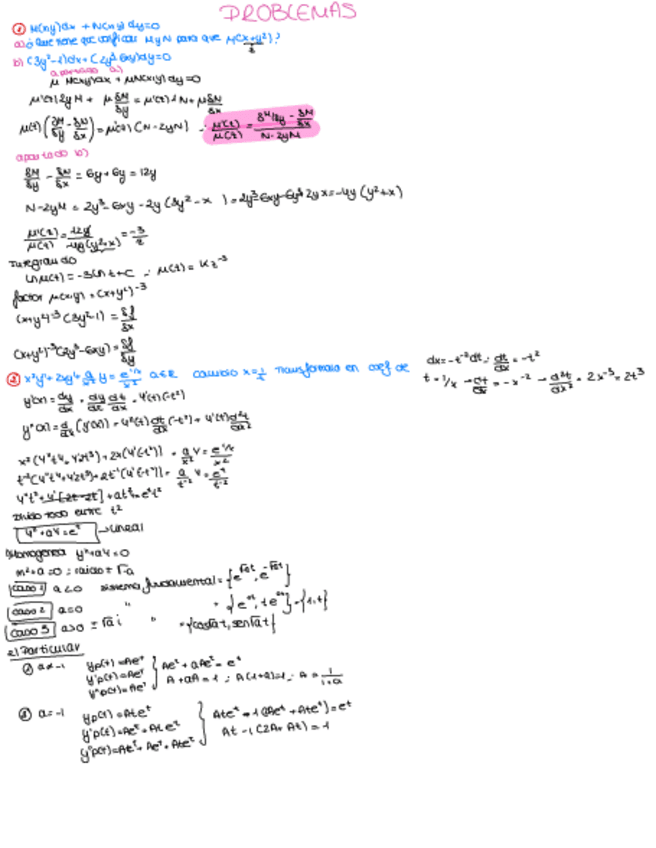 PROBLEMAS
① M(x,y)dx + N(x,y)dy=0
a) ¿Que tiene que verificar M y N para que μ(x+y²)?
z
b) (3y²-x)dx+(2y³-6xy)dy=0
apartado a)
μ M(x,y)dx + μN(x,y)dy=0
μ'(z)2yM + μ δM/δy = μ'(z)·N + μ δN/δx
μ(z)(δM/δy - δN/δx) = μ'(z)(N-2yM) ∴ μ'(z)/μ(z) = (δM/δy - δN/δx)/(N-2yM)
apartado b)
δM/δy - δN/δx = 6y+6y = 12y
N-2yM = 2y³-6xy-2y(3y²-x) = 2y³-6xy-6y³+2yx = -4y(y²+x)
μ'(z)/μ(z) = 12y/-4y(y²+x) = -3/z
Integrando
Ln μ(z) = -3Ln z + C ∴ μ(z) = Kz⁻³
factor μ(x,y) = (x+y²)⁻³
(x+y²)⁻³(3y²-x) = δf/δx
(x+y²)⁻³(2y³-6xy) = δf/δy
② x²y''+2xy'+ a/x² y = e^(1/x)/x² a∈R cambio x=1/t transforma en coef de
dx=-t⁻²dt ∴ dt/dx = -t²
t = 1/x → dt/dx = -x⁻² → d²t/dx² = 2x⁻³ = 2t³
y'(x) = dy/dx = dy/dt dt/dx = y'(t)(-t²)
y''(x) = d/dx (y'(x)) = y''(t) dt/dx (-t²) + y'(t) d²t/dx²
x²(y''t⁴+y'2t³) + 2x(y'(-t²)) + a/x² y = e^(1/x)/x²
t⁻²(y''t⁴+y'2t³) + 2t⁻¹(y'(-t²)) + a/t⁻² y = e^t/t⁻²
y''t²+y'[2t-2t]+at²y=e^t t²
Divido todo entre t²
y''+ay=e^t → lineal
Homogenea y''+ay=0
m²+a=0 ; raices ± √-a
caso 1 a<0 sistema fundamental = {e^√-at, e^-√-at}
caso 2 a=0 " " = {e^0t, te^0t} = {1,t}
caso 3 a>0 ± √a i " = {cos√at, sen√at}
e) Particular
① a≠-1 yp(t)=Ae^t
y'p(t)=Ae^t
y''p(t)=Ae^t
Ae^t + aAe^t = e^t
A+aA=1 ∴ A(1+a)=1 ∴ A = 1/(1+a)
② a=-1 yp(t)=Ate^t
y'p(t)=Ae^t+Ate^t
y''p(t)=Ae^t+Ae^t+Ate^t
Ate^t -1(2Ae^t + Ate^t)=e^t
At-1(2A+At)=1